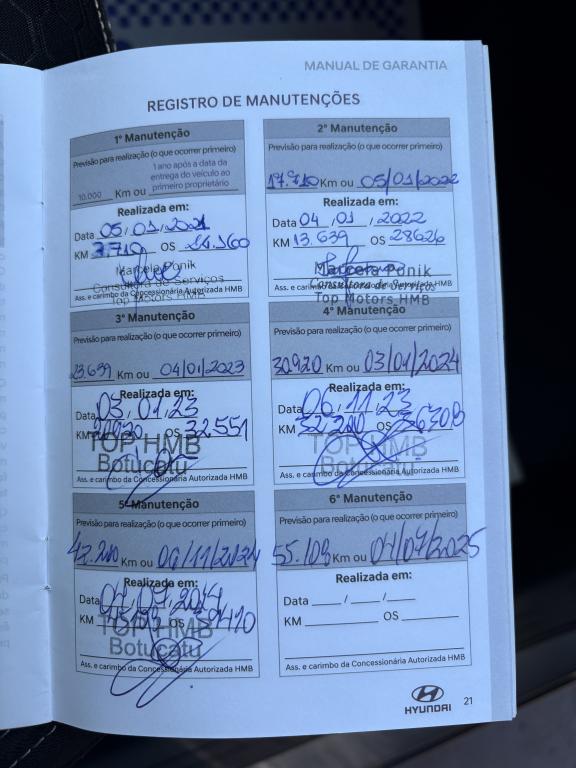 MANUAL DE GARANTIA
REGISTRO DE MANUTENÇÕES
1ª Manutenção
Previsão para realização (o que ocorrer primeiro)
10.000 Km ou 1 ano após a data da entrega do veículo ao primeiro proprietário
Realizada em:
Data 05 / 01 / 2021
KM 7.710 OS 24.160
Marcela Ponik
Consultora de Serviços
Top Motors HMB
Ass. e carimbo da Concessionária Autorizada HMB
2ª Manutenção
Previsão para realização (o que ocorrer primeiro)
17.710 Km ou 05/01/2022
Realizada em:
Data 04 / 01 / 2022
KM 13.639 OS 28626
Marcela Ponik
Consultora de Serviços
Top Motors HMB
Ass. e carimbo da Concessionária Autorizada HMB
3ª Manutenção
Previsão para realização (o que ocorrer primeiro)
23.639 Km ou 04/01/2023
Realizada em:
Data 03 / 01 / 23
KM OS 32.551
TOP HMB
Botucatu
Ass. e carimbo da Concessionária Autorizada HMB
4ª Manutenção
Previsão para realização (o que ocorrer primeiro)
30.920 Km ou 03/01/2024
Realizada em:
Data 06 / 11 / 23
KM 32.200 OS
TOP HMB
Botucatu
Ass. e carimbo da Concessionária Autorizada HMB
5ª Manutenção
Previsão para realização (o que ocorrer primeiro)
42.200 Km ou 06/11/2024
Realizada em:
Data
KM OS
TOP HMB
Botucatu
Ass. e carimbo da Concessionária Autorizada HMB
6ª Manutenção
Previsão para realização (o que ocorrer primeiro)
55.109 Km ou 04/07/2025
Realizada em:
Data ____ / ____ / ____
KM ____ OS ____
Ass. e carimbo da Concessionária Autorizada HMB
HYUNDAI
21